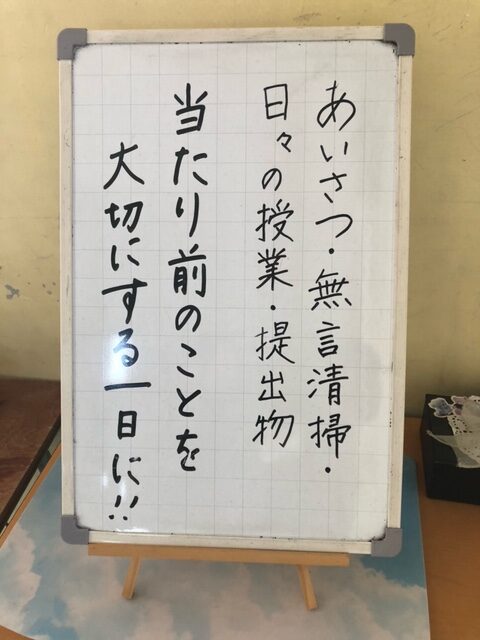 あいさつ・無言清掃・
日々の授業・提出物
当たり前のことを
大切にする一日に!!